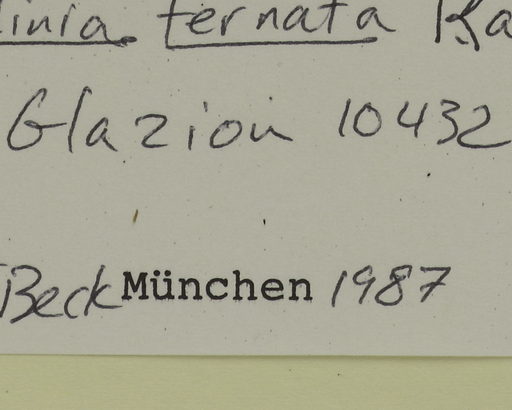 inia ternata Ka
Glaziou 10432
Beck München 1987